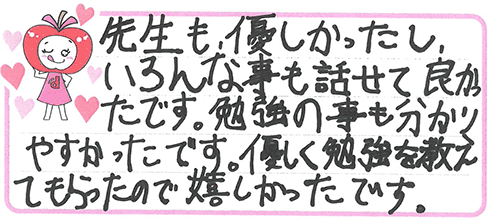 先生も、優しかったし、
いろんな事も話せて良かっ
たです。勉強の事も分かり
やすかったです。優しく勉強を教え
てもらったので嬉しかったです。